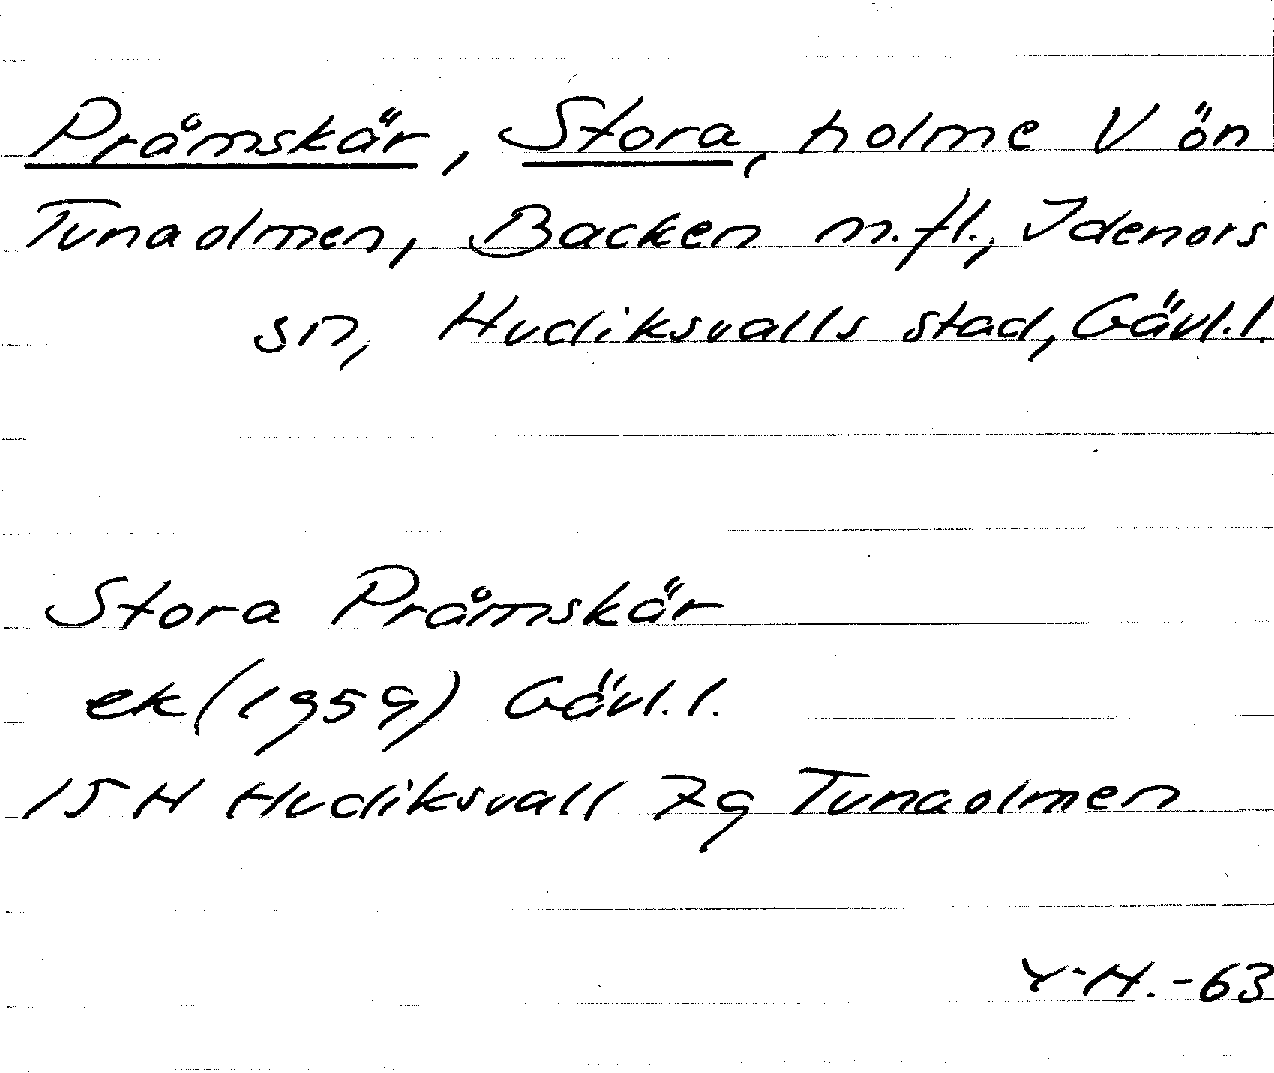 Pråmskär, Stora, holme V ön
Tunaolmen, Backen m.fl., Idenors
sn, Hudiksvalls stad, Gävl.l.
Stora Pråmskär
ek (1959) Gävl.l.
15 H Hudiksvall 7g Tunaolmen
Y-H. -63